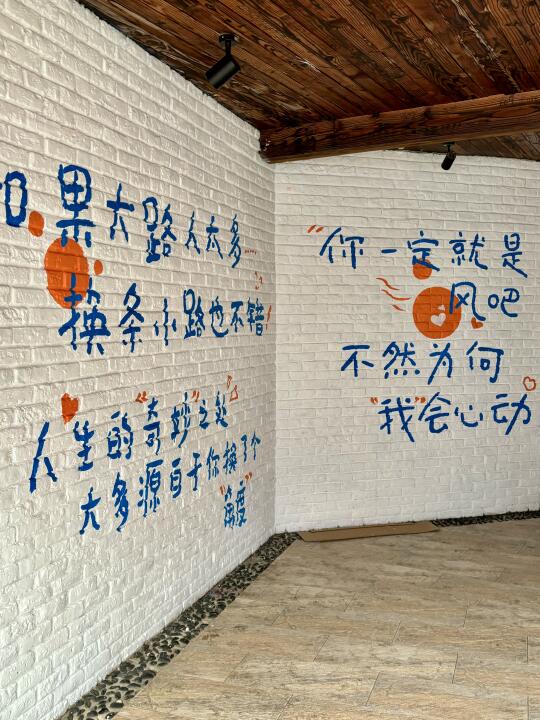 如果大路人太多……
换条小路也不错!
人生的“奇妙”之处
大多源自于你换了个
“高度”
“你一定就是
风吧
不然为何
“我”会心动